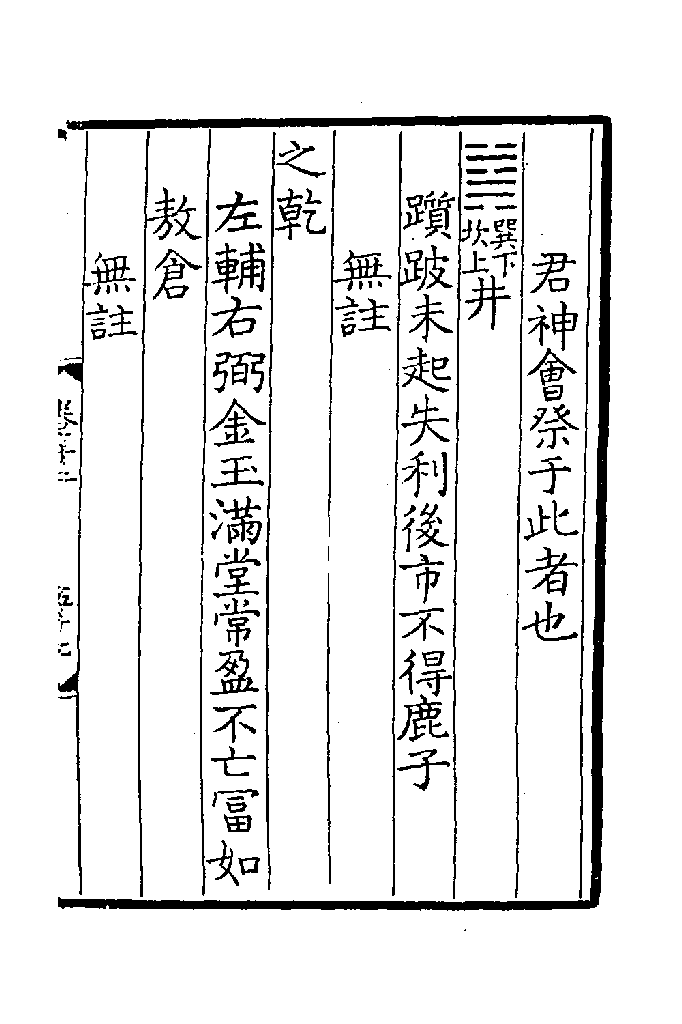 君神會祭于此者也
巽下坎上井
躓跛未起失利後市不得鹿子
無註
之乾
左輔右弼金玉滿堂常盈不亡冨如
敖倉
無註